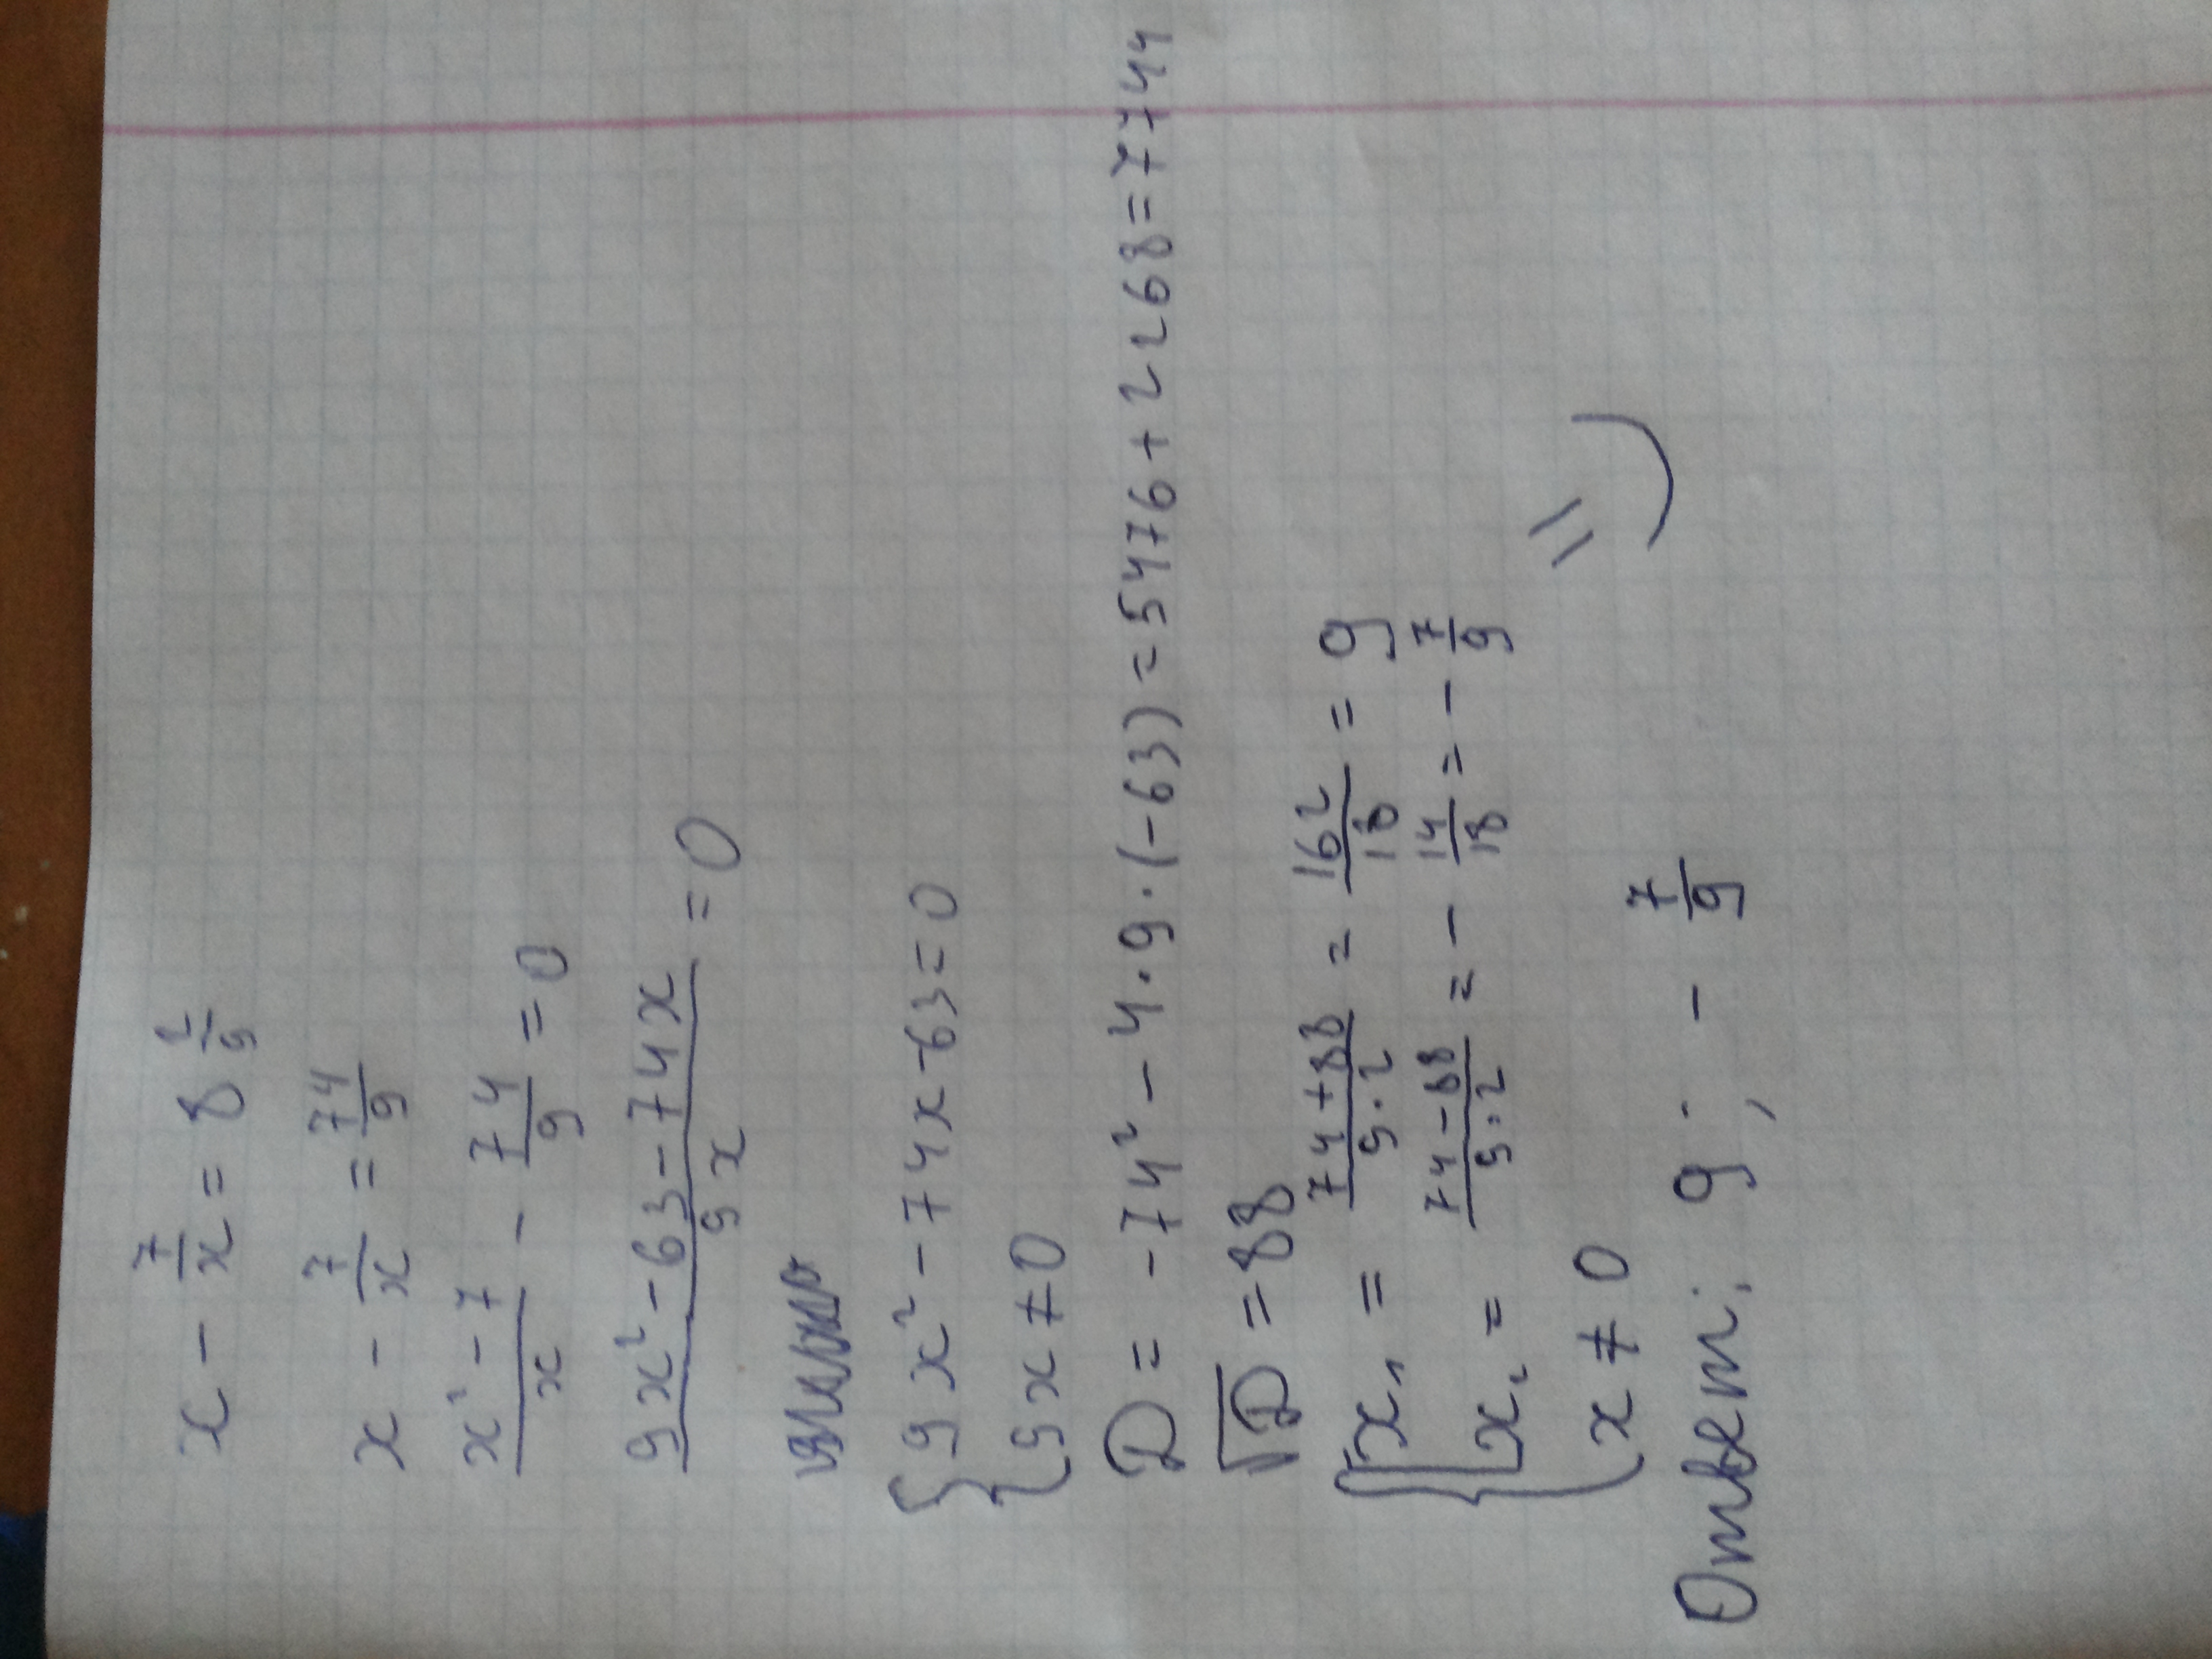 x - 7/x = 8 2/9
x - 7/x = 74/9
(x² - 7)/x - 74/9 = 0
(9x² - 63 - 74x)/9x = 0
{ 9x² - 74x - 63 = 0
{ 9x ≠ 0
D = -74² - 4·9·(-63) = 5476 + 2268 = 7744
√D = 88
{ [ x₁ = (74 + 88)/(9·2) = 162/18 = 9
[ x₂ = (74 - 88)/(9·2) = - 14/18 = - 7/9
x ≠ 0
=)
Ответ: 9; - 7/9